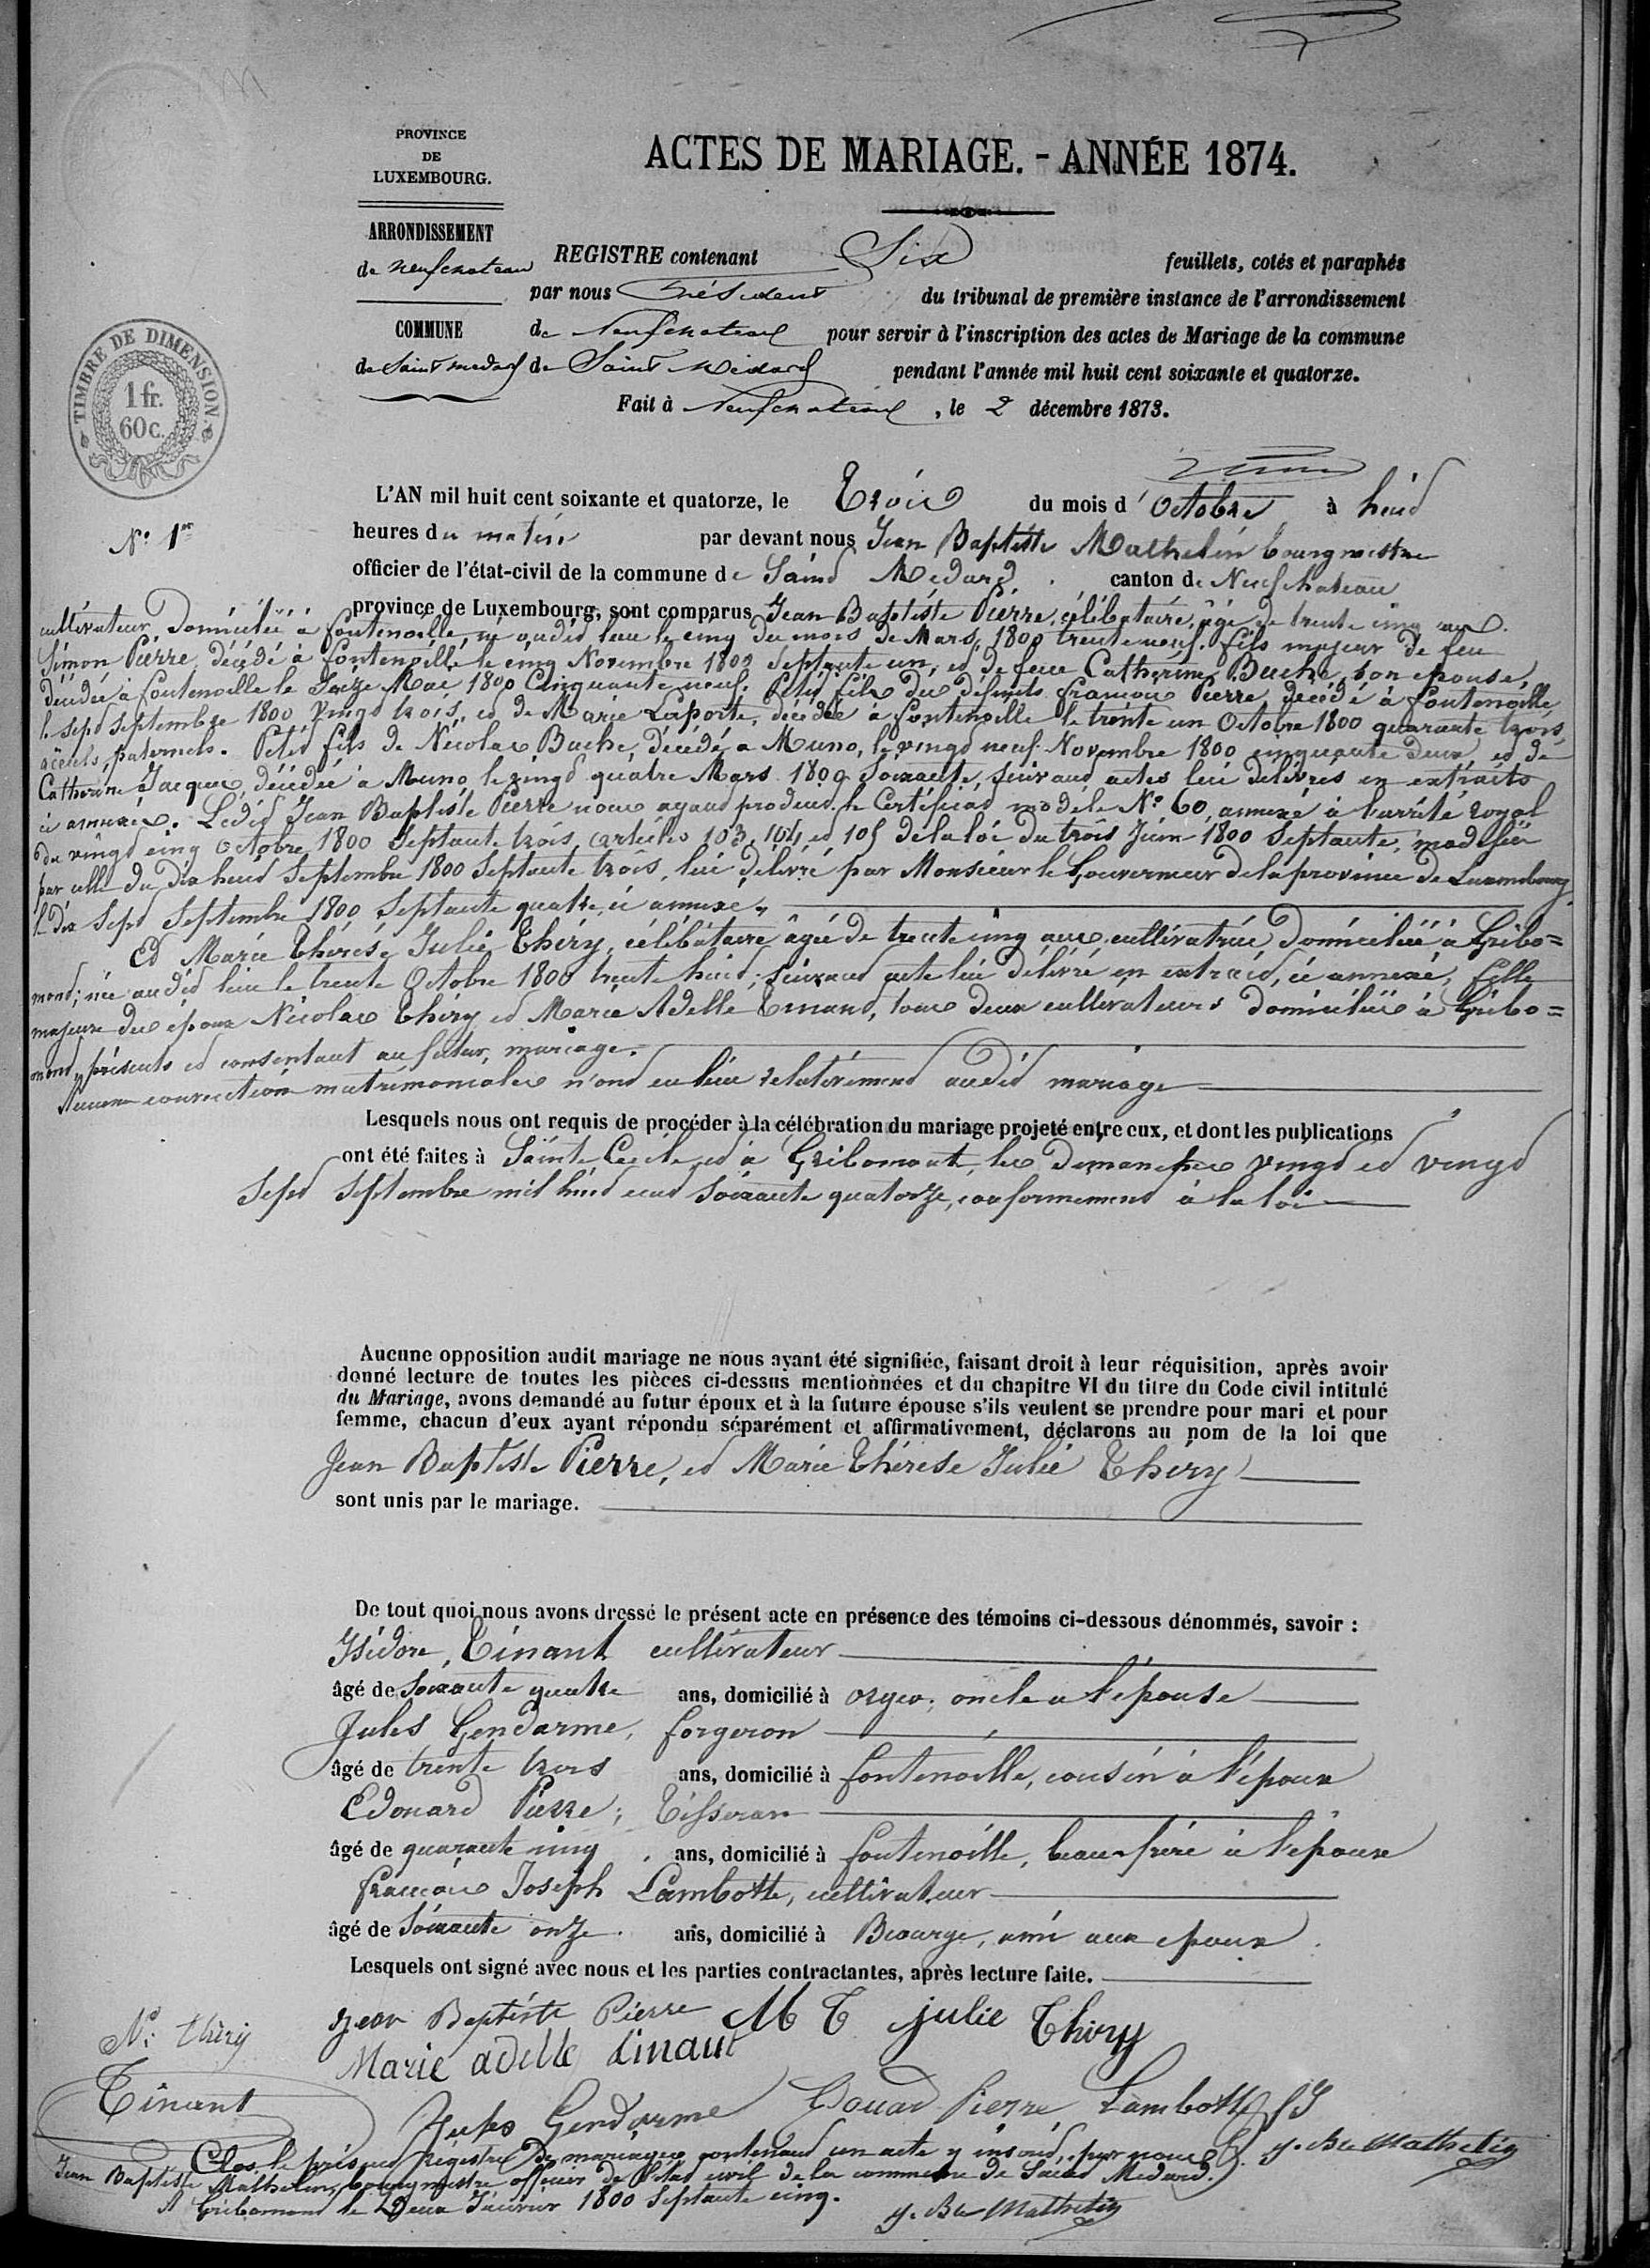 PROVINCE
DE
LUXEMBOURG.
ACTES DE MARIAGE. - ANNÉE 1874.
ARRONDISSEMENT
de neufchateau
COMMUNE
de Saint medard
REGISTRE contenant Six feuillets, cotés et paraphés
par nous Président du tribunal de première instance de l'arrondissement
de Neufchateau pour servir à l'inscription des actes de Mariage de la commune
de Saint Médard pendant l'année mil huit cent soixante et quatorze.
Fait à Neufchateau, le 2 décembre 1873.
TIMBRE DE DIMENSION
1 fr.
60 c.
N° 1er
L'AN mil huit cent soixante et quatorze, le Trois du mois d'Octobre à huit
heures du matin par devant nous Jean Baptiste Mathelin bourgmestre
officier de l'état-civil de la commune de Saint Medard canton de Neufchateau
province de Luxembourg, sont comparus Jean Baptiste Pierre, célébataire, âgé de trente cinq ans.
cultivateur Domicilié à fontenoille né audit lieu le cinq du mois de Mars 1800 trente neuf. fils majeur de feu
Simon Pierre, décédé à fontenoille le cinq Novembre 1800 Septante un, et de feue Catherine Buche, son epouse,
décédée à fontenoille le Treize Mai 1800 Cinquante neuf. Petit fils des défunts françois Pierre decédé à fontenoille
le sept septembre 1800 Vingt trois, et de Marie Laporte, décédée à fontenoille le trente un Octobre 1800 quarante trois,
aïeuls paternels. Petit fils de Nicolas Buche, décédé à Muno, le vingt neuf Novembre 1800 cinquante Deux, et de
Catherine Jacques, décédée à Muno le vingt quatre Mars 1800 Soixante, suivant actes lui delivrés en extraits
ci annexés. Ledit Jean Baptiste Pierre nous ayant produit le Certificat modèle N° 60, annexé à l'arrêté royal
du vingt cinq Octobre 1800 Septante trois, articles 103, 104 et 105 de la loi du trois Juin 1800 Septante, modifiée
par celle du Dix huit Septembre 1800 Septante trois, lui delivré par Monsieur le Gouverneur de la province de Luxembourg
le dix sept Septembre 1800 Septante quatre, ci annexé.
Et Marie Thérèse Julie Thiry, célébataire âgée de trente cinq ans, cultivatrice Domiciliée à Gribo=
mont; née audit lieu le trente Octobre 1800 trente huit; suivant acte lui délivré en extrait, ci annexé, fille
majeure des époux Nicolas Thiry et Marie Adelle Tinant, tous deux cultivateurs domiciliés à Gribo=
mont, présents et consentant au futur mariage.
Aucune convention matrimoniales n'ont eu lieu relativement audit mariage
Lesquels nous ont requis de procéder à la célébration du mariage projeté entre eux, et dont les publications
ont été faites à Sainte Cecile et à Gribomont les Dimanches vingt et vingt
Sept Septembre mil huit cent Soixante quatorze, conformement à la loi
Aucune opposition audit mariage ne nous ayant été signifiée, faisant droit à leur réquisition, après avoir
donné lecture de toutes les pièces ci-dessus mentionnées et du chapitre VI du titre du Code civil intitulé
du Mariage, avons demandé au futur époux et à la future épouse s'ils veulent se prendre pour mari et pour
femme, chacun d'eux ayant répondu séparément et affirmativement, déclarons au nom de la loi que
Jean Baptiste Pierre, et Marie Thérèse Julie Thiry
sont unis par le mariage.
De tout quoi nous avons dressé le présent acte en présence des témoins ci-dessous dénommés, savoir :
Isidore, Tinant cultivateur
âgé de Soixante quatre ans, domicilié à orgeo; oncle a l'épouse
Jules Gendarme, forgeron
âgé de trente trois ans, domicilié à fontenoille, cousin à l'époux
Edouard Pierre; Tisseran
âgé de quarante cinq ans, domicilié à fontenoille, beau-frère à l'époux
françois Joseph Lambotte, cultivateur
âgé de Soixante onze ans, domicilié à Beourge, ami aux epoux.
Lesquels ont signé avec nous et les parties contractantes, après lecture faite.
N: thiry
jean Baptiste Pierre M T julie Thiry
Marie adelle tinant
Tinant
Jules Gendarme Edouad Pierre Lambotte f J
J. Bte Mathelin
Clos le présent Régistre De mariages contenant un acte y inscrit, par nous
Jean Baptiste Mathelin, bourgmestre officier de l'état civil de la commune de Saint Medard.
A Gribomont le Deux Janvier 1800 Septante cinq.
J. Bte Mathelin